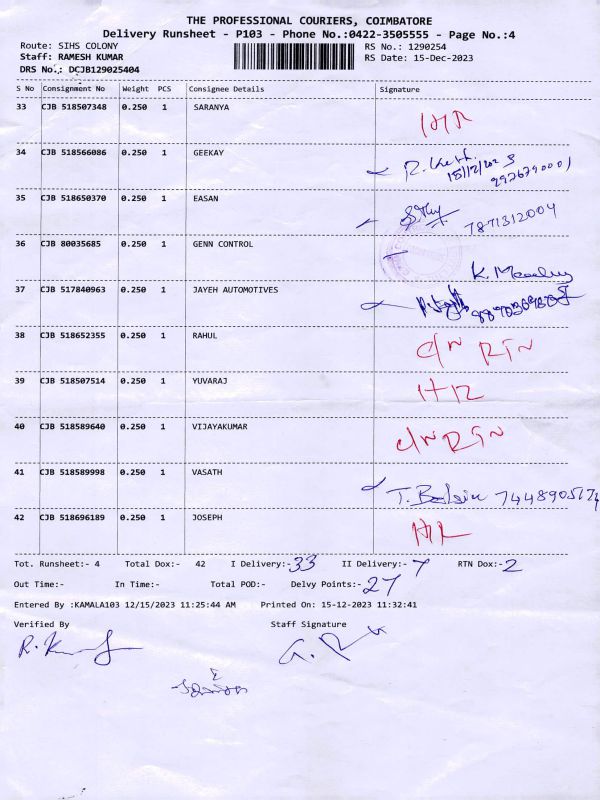 THE PROFESSIONAL COURIERS, COIMBATORE
Delivery Runsheet - P103 - Phone No.:0422-3505555 - Page No.:4
Route: SIHS COLONY RS No.: 1290254
Staff: RAMESH KUMAR RS Date: 15-Dec-2023
DRS No.: DCJB129025404
S No Consignment No Weight PCS Consignee Details Signature
33 CJB 518507348 0.250 1 SARANYA
34 CJB 518566086 0.250 1 GEEKAY
15/12/2023
35 CJB 518650370 0.250 1 EASAN
7871312004
36 CJB 80035685 0.250 1 GENN CONTROL
37 CJB 517840963 0.250 1 JAYEH AUTOMOTIVES
38 CJB 518652355 0.250 1 RAHUL C/N RTN
39 CJB 518507514 0.250 1 YUVARAJ
40 CJB 518589640 0.250 1 VIJAYAKUMAR C/N RTN
41 CJB 518589998 0.250 1 VASATH
42 CJB 518696189 0.250 1 JOSEPH
Tot. Runsheet:- 4 Total Dox:- 42 I Delivery:- 33 II Delivery:- 7 RTN Dox:- 2
Out Time:- In Time:- Total POD:- Delvy Points:- 27
Entered By :KAMALA103 12/15/2023 11:25:44 AM Printed On: 15-12-2023 11:32:41
Verified By Staff Signature